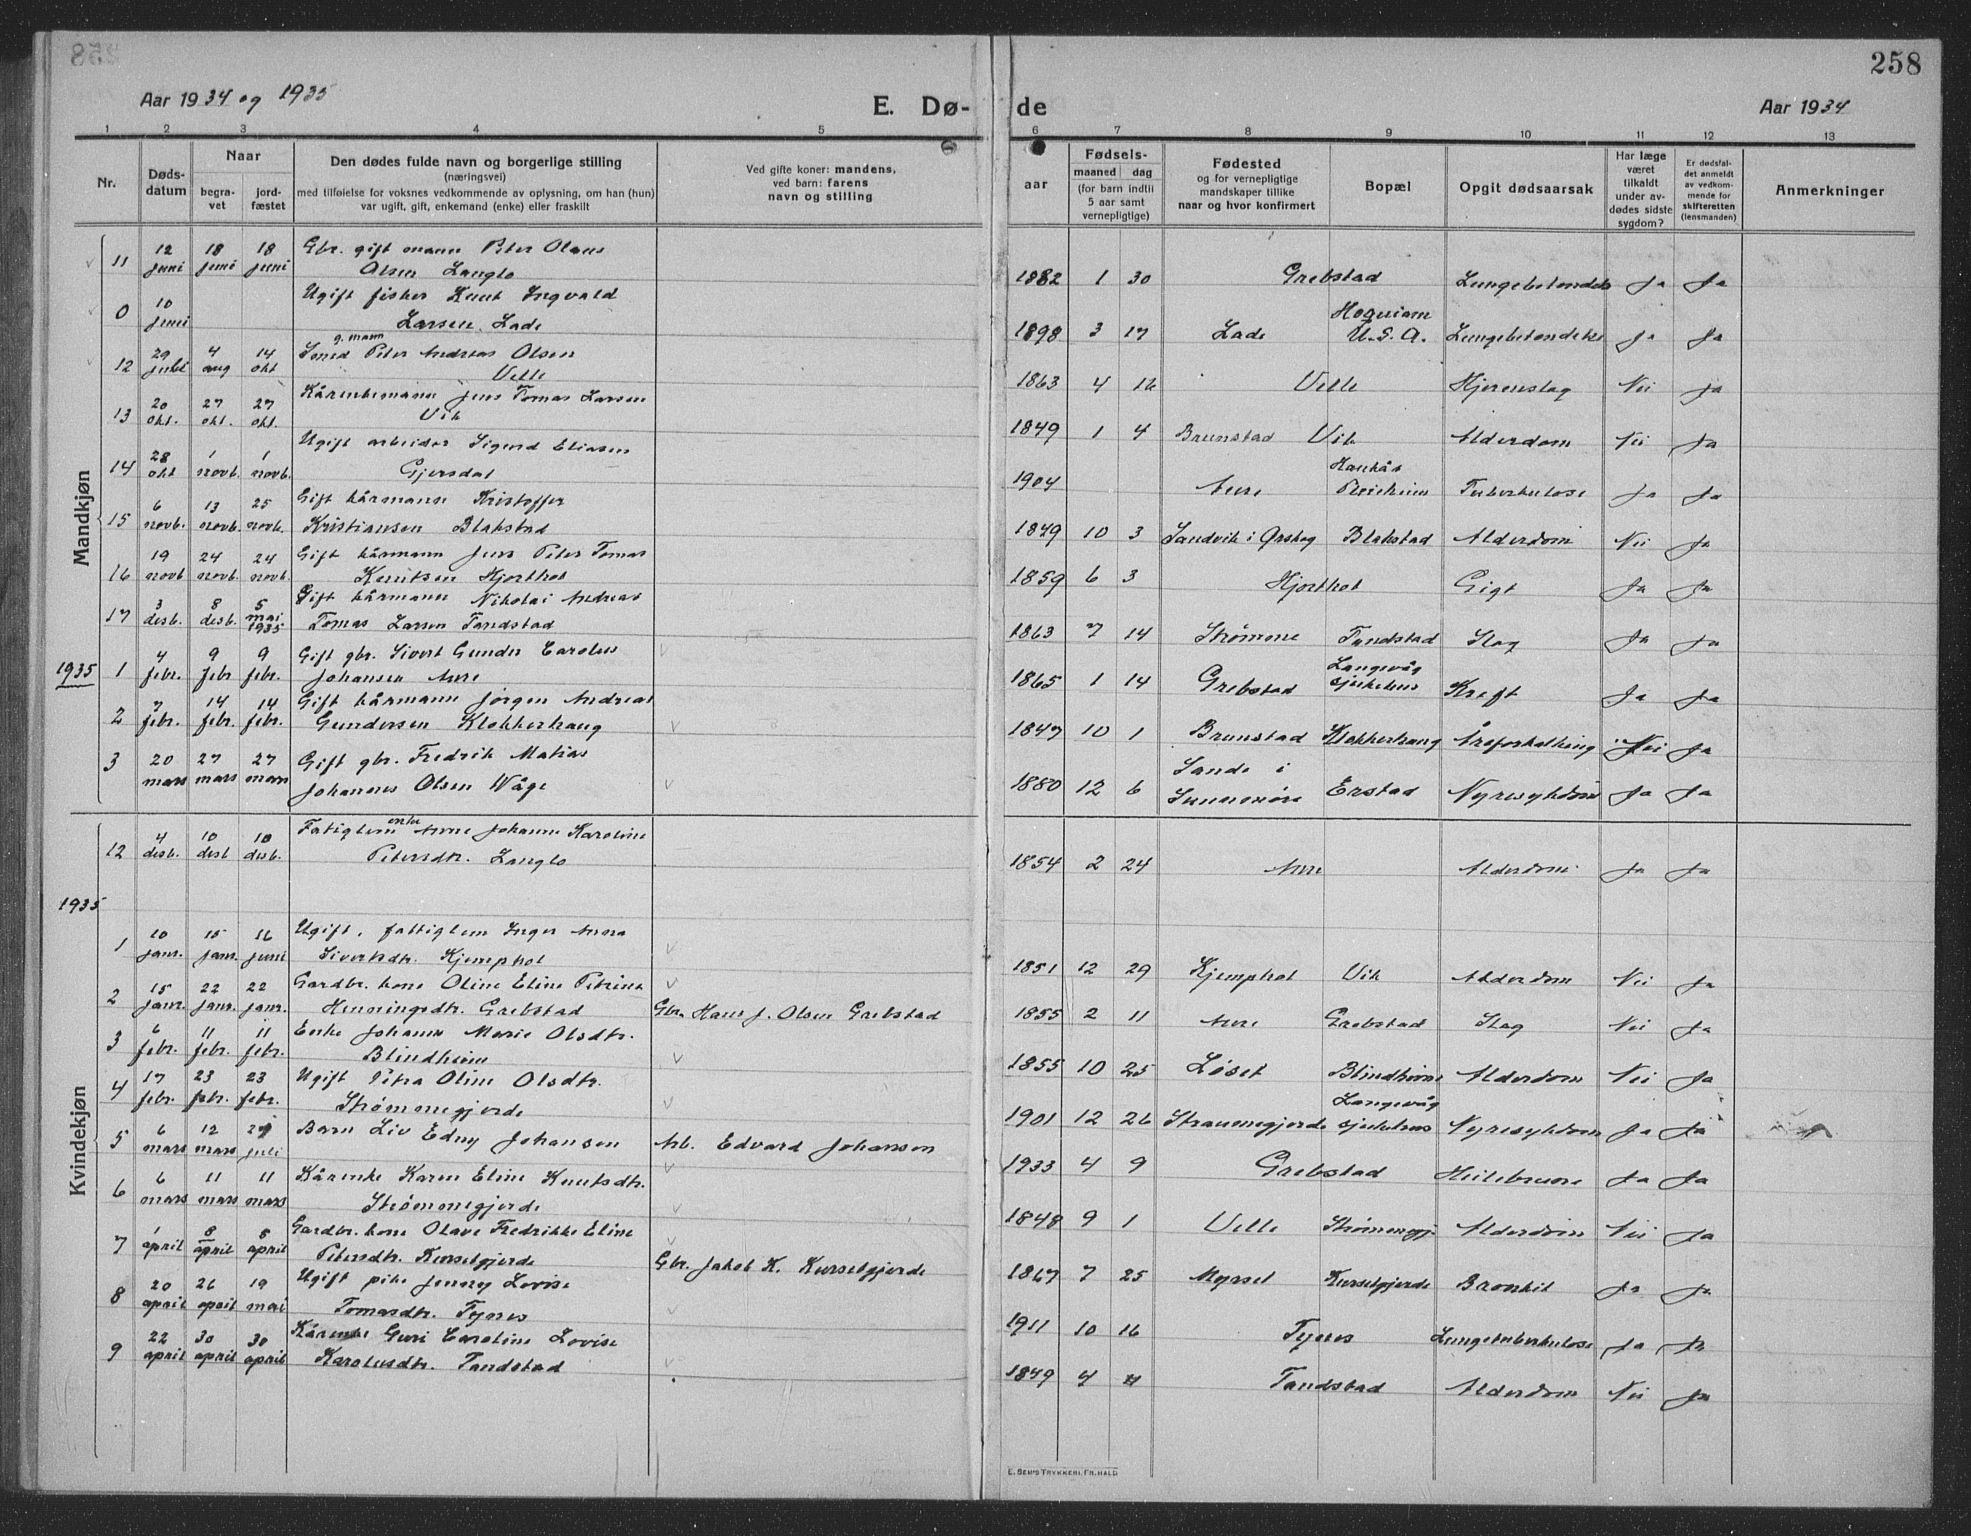 258
Aar 1934 og 1935
E. Dø-
de
Aar 1934
1 2 3 4 5 6 7 8 9 10 11 12 13
Nr.
Døds-
datum
Naar
begra-
vet
jord-
fæstet
Den dødes fulde navn og borgerlige stilling
(næringsvei)
med tilføielse for voksnes vedkommende av oplysning, om han (hun)
var ugift, gift, enkemand (enke) eller fraskilt
Ved gifte koner: mandens,
ved barn: farens
navn og stilling
aar
Fødsels-
maaned dag
(for barn indtil
5 aar samt
vernepligtige)
Fødested
og for vernepligtige
mandskaper tillike
naar og hvor konfirmert
Bopæl
Opgit dødsaarsak
Har læge
været
tilkaldt
under av-
dødes sidste
sygdom?
Er dødsfal-
det anmeldt
av vedkom-
mende for
skifteretten
(lensmanden)
Anmerkninger
Mandkjøn
11 12 juni 18 juni 18 juni Gbr. gift mann Peter Olaus
Olsen Langlo 1882 1 30 Grebstad Lungebetendelse Ja Ja
0 10 juni Ugift fisker Knut Ingvald
Larsen Lade 1898 3 17 Lade Hoquiam U.S.A. Lungebetendelse Ja Ja
12 29 juli 4 aug 14 okt Smed g. mann Peter Andreas Olsen
Velle 1863 4 16 Velle Hjerneslag Nei Ja
13 20 okt. 27 okt. 27 okt. Kårenkemann Jens Tomas Larsen
Vik 1849 1 4 Brunstad Vik Alderdom Nei Ja
14 28 okt 1 novb. 1 novb. Ugift arbeider Sigurd Eliasen
Gjersdal 1904 Aure Tuberkulose Ja Ja
15 6 novb. 13 novb. 25 novb. Gift kårmann Kristoffer
Kristiansen Blakstad 1849 10 3 Sandvik i Ørskog Blakstad Alderdom Nei Ja
16 19 novb 24 novb. 24 novb. Gift kårmann Jens Peter Tomas
Knutsen Hjorthol 1859 6 3 Hjorthol Gigt Ja Ja
17 3 desb. 8 desb. 5 mai 1935 Gift kårmann Nikolai Andreas
Tomas Larsen Tandstad 1863 7 14 Strømme Tandstad Slag Ja Ja
1935 1 4 febr. 9 febr 9 febr. Gift gbr. Sivert Gunder Carolus
Johansen Aure 1865 1 14 Grebstad Langevåg sjukehus Kreft Ja Ja
2 7 febr. 14 febr. 14 febr. Gift kårmann Jørgen Andreas
Gundersen Klokkerhaug 1847 10 1 Brunstad Klokkerhaug Åreforkalkning Nei Ja
3 20 mars 27 mars 27 mars Gift gbr. Fredrik Matias
Johannes Olsen Våge 1880 12 6 Sande i Sunnmøre Erstad Nyresykdom Ja Ja
Kvindekjøn
12 4 desb. 10 desb 10 desb. Fatiglem enke Anne Johanne Karoline
Petersdtr. Langlo 1854 2 24 Aure Alderdom Ja Ja
1935
1 10 janr. 15 janr. 16 juni Ugift. fattiglem Inger Anna
Sivertsdtr. Kjemphol 1851 12 29 Kjemphol Vik Alderdom Nei Ja
2 15 janr. 22 janr. 22 janr. Gardbr. kone Oline Eline Petrine
Henningsdtr. Grebstad Gbr. Hans J. Olsen Grebstad 1855 2 11 Aure Grebstad Slag Nei Ja
3 6 febr. 11 febr. 11 febr. Enke Johanne Marie Olsdtr.
Blindheim 1855 10 25 Løset Blindheim Alderdom Nei Ja
4 17 febr. 23 febr. 23 febr. Ugift Petra Oline Olsdtr.
Strømmegjerde 1901 12 26 Straumegjerde Langevåg sjukehus Nyresykdom Ja Ja
5 6 mars 12 mars 21 juli Barn Liv Edny Johansen Arb. Edvard Johansen 1933 4 9 Grebstad Ja Ja
6 6 mars 11 mars 11 mars Kårenke Karen Eline Knutsdtr.
Strømmegjerde 1848 9 1 Velle Strømmegj. Alderdom Nei Ja
7 1 april 8 april 8 april Gardbr. kone Olave Fredrikke Eline
Petersdtr. Kurselgjerde Gbr. Jakob K. Kurselgjerde 1867 7 25 Myrset Kurselgjerde Bronkit Ja Ja
8 20 april 26 april 19 mai Ugift pike Jenny Lovise
Tomasdtr. Tynes 1911 10 16 Tynes Lungetuberkulose Ja Ja
9 22 april 30 april 30 april Kårenke Guri Caroline Lovise
Karolusdtr. Tandstad 1849 4 4 Tandstad Alderdom Nei Ja
E. SEM'S TRYKKERI, FR.HALD